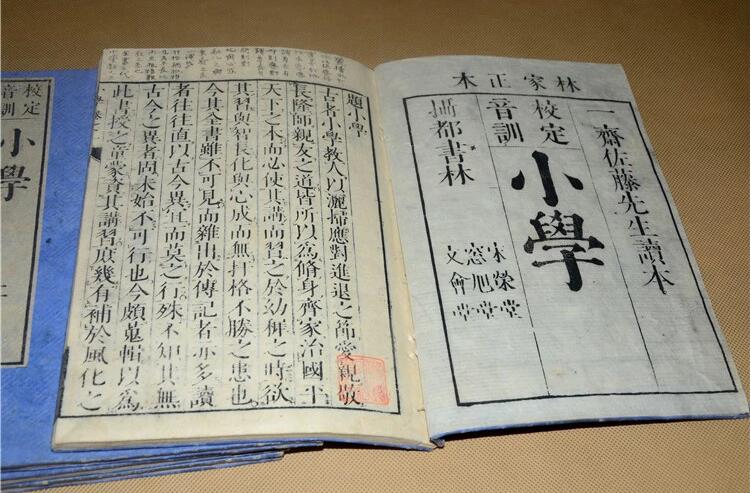 林家正本
一齋佐藤先生讀本
校定
音訓
小學
攝都書林
宋榮堂
文會堂
題小學
古者小學教人以灑掃應對進退之節愛親敬
長隆師親友之道皆所以爲脩身齊家治國平
天下之本而必使其講而習之於幼稺之時欲
其習與智長化與心成而無扞格不勝之患也
今其全書雖不可見而雜出於傳記者亦多讀
者往往直以古今異宜而莫之行殊不知其無
古今之異者固未始不可行也今頗蒐輯以爲
此書授之童蒙資其講習庶幾有補於風化之
校定
音訓
小學